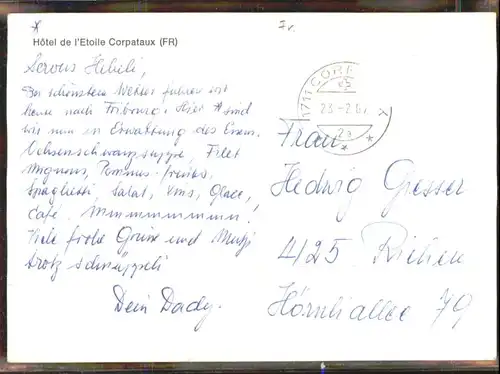 Hôtel de l'Etoile Corpataux (FR)
Servus Hebeli,
Bei schönstem Wetter fuhren wir
heute nach Fribourg. Hier * sind
wir nun in Erwartung des Essens.
Ochsenschwanzsuppe, Filet
Mignons, Pommes-frites,
Spaghetti, Salat, Glace,
Café. Mmmmmmmm!
Viele frohe Grüsse und
trotz
Dein Dady.
1711 CORP
23.-2.
Frau
Hedwig Gresser
4125 Riehen
Hörnliallee 79